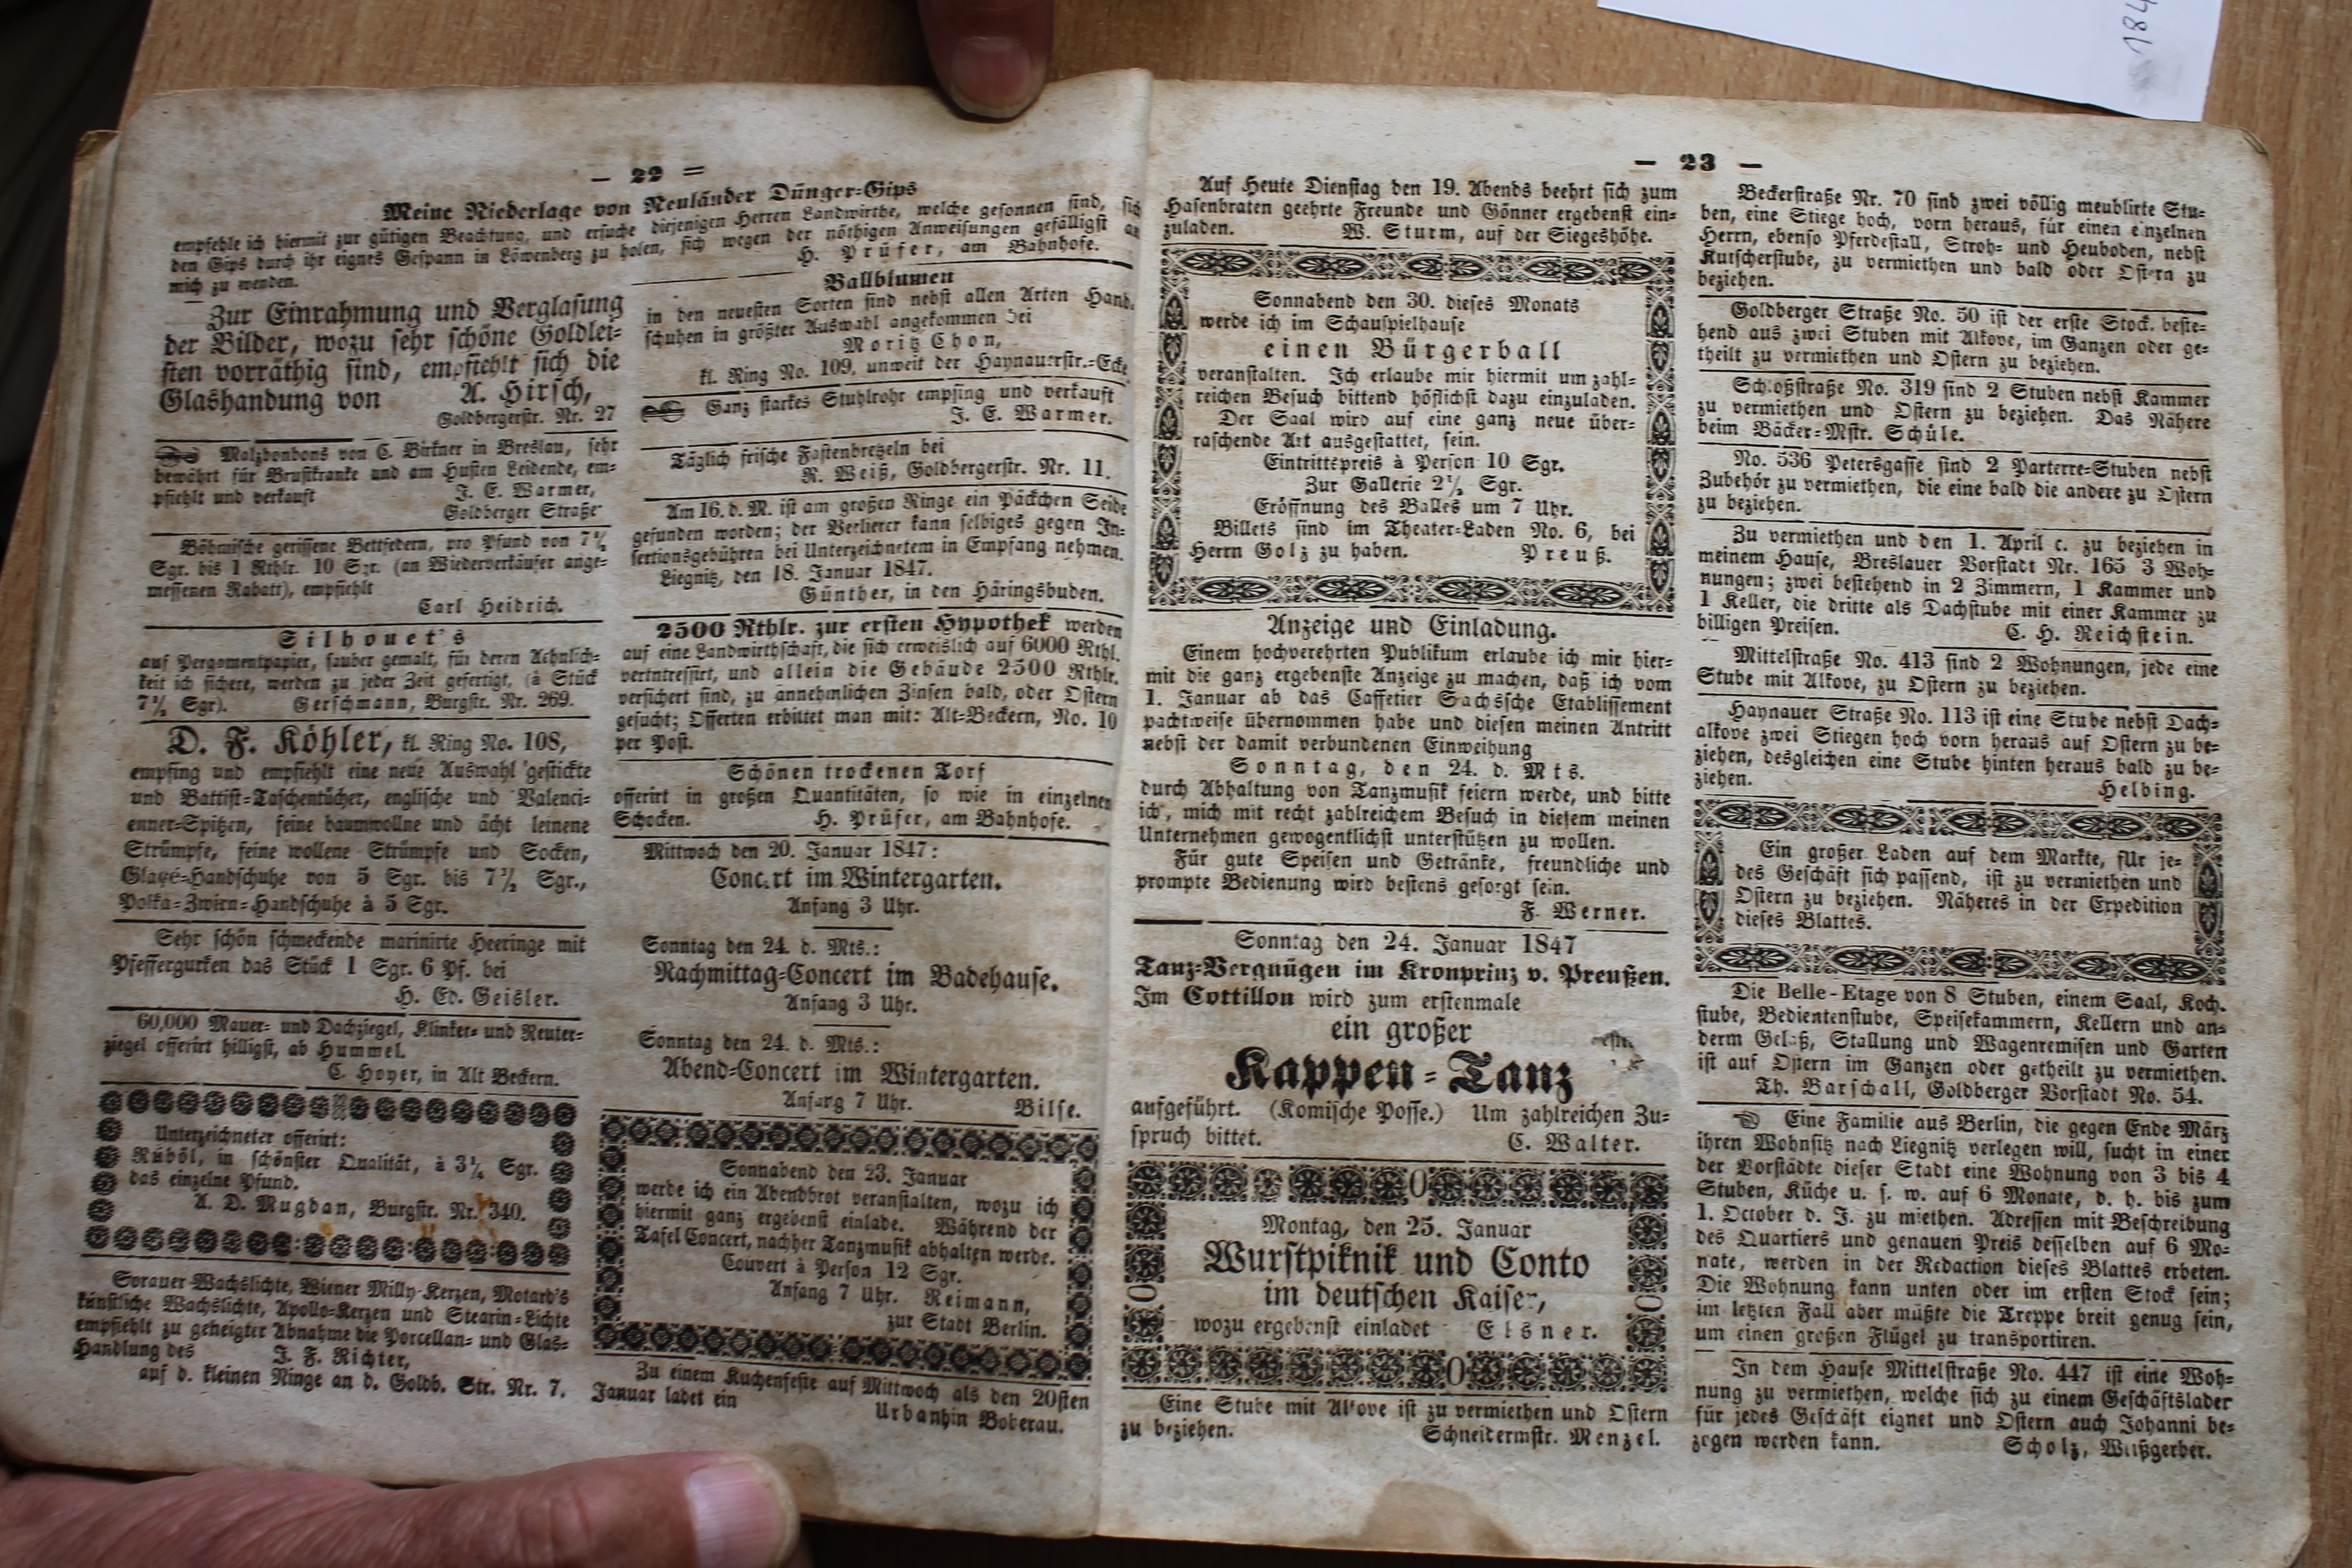 — 22 =
Meine Niederlage von Neuländer Dünger=Gips
empfehle ich hiermit zur gütigen Beachtung, und ersuche diejenigen Herren Landwirthe, welche gesonnen sind, sich
den Gips durch ihr eignes Gespann in Löwenberg zu holen, sich wegen der nöthigen Anweisungen gefälligst an
mich zu wenden. H. Prüfer, am Bahnhofe.
Zur Einrahmung und Verglasung
der Bilder, wozu sehr schöne Goldlei=
sten vorräthig sind, empfiehlt sich die
Glashandung von A. Hirsch,
Goldbergerstr. Nr. 27
Malzbonbons von C. Birkner in Breslau, sehr
bewährt für Brustkranke und am Husten Leidende, em=
pfiehlt und verkauft J. E. Warmer,
Goldberger Straße
Böhmische gerissene Bettfedern, pro Pfund von 7½
Sgr. bis 1 Rthlr. 10 Sgr. (an Wiederverkäufer ange=
messenen Rabatt), empfiehlt
Carl Heidrich.
Silhouet's
auf Pergamentpapier, sauber gemalt, für deren Aehnlich=
keit ich sichere, werden zu jeder Zeit gefertigt, (à Stück
7½ Sgr). Gerschmann, Burgstr. Nr. 269.
D. F. Köhler, kl. Ring No. 108,
empfing und empfiehlt eine neue Auswahl gestickte
und Battist=Taschentücher, englische und Valenci=
enner=Spitzen, feine baumwollne und ächt leinene
Strümpfe, feine wollene Strümpfe und Socken,
Glagé=Handschuhe von 5 Sgr. bis 7½ Sgr.,
Polka=Zwirn=Handschuhe à 5 Sgr.
Sehr schön schmeckende marinirte Heeringe mit
Pfeffergurken das Stück 1 Sgr. 6 Pf. bei
H. Ed. Geisler.
60,000 Mauer= und Dachziegel, Klinker= und Reuter=
ziegel offerirt billigst, ab Hummel.
C. Hoyer, in Alt Beckern.
Unterzeichneter offerirt:
Rüböl, in schönster Qualität, à 3¼ Sgr.
das einzelne Pfund.
A. D. Mugdan, Burgstr. Nr. 340.
Sorauer Wachslichte, Wiener Milly=Kerzen, Motard's
künstliche Wachslichte, Apollo=Kerzen und Stearin=Lichte
empfiehlt zu geneigter Abnahme die Porcellan= und Glas=
Handlung des J. F. Richter,
auf d. kleinen Ringe an d. Goldb. Str. Nr. 7.
Ballblumen
in den neuesten Sorten sind nebst allen Arten Hand=
schuhen in größter Auswahl angekommen bei
Moritz Chon,
kl. Ring No. 109, unweit der Haynauerstr.=Ecke
Ganz starkes Stuhlrohr empfing und verkauft
J. E. Warmer.
Täglich frische Fastenbretzeln bei
R. Weiß, Goldbergerstr. Nr. 11.
Am 16. d. M. ist am großen Ringe ein Päckchen Seide
gefunden worden; der Verlierer kann selbiges gegen In=
sertionsgebühren bei Unterzeichnetem in Empfang nehmen.
Liegnitz, den 18. Januar 1847.
Günther, in den Häringsbuden.
2500 Rthlr. zur ersten Hypothek werden
auf eine Landwirthschaft, die sich erweislich auf 6000 Rthl.
vertntressirt, und allein die Gebäude 2500 Rthlr.
versichert sind, zu annehmlichen Zinsen bald, oder Ostern
gesucht; Offerten erbittet man mit: Alt=Beckern, No. 10
per Post.
Schönen trockenen Torf
offerirt in großen Quantitäten, so wie in einzelnen
Schocken. H. Prüfer, am Bahnhofe.
Mittwoch den 20. Januar 1847:
Concert im Wintergarten.
Anfang 3 Uhr.
Sonntag den 24. d. Mts.:
Nachmittag=Concert im Badehause.
Anfang 3 Uhr.
Sonntag den 24. d. Mts.:
Abend=Concert im Wintergarten.
Anfang 7 Uhr. Bilse.
Sonnabend den 23. Januar
werde ich ein Abendbrot veranstalten, wozu ich
hiermit ganz ergebenst einlade. Während der
Tafel Concert, nachher Tanzmusik abhalten werde.
Couvert à Person 12 Sgr.
Anfang 7 Uhr. Reimann,
zur Stadt Berlin.
Zu einem Kuchenfeste auf Mittwoch als den 20sten
Januar ladet ein Urbanhin Boberau.
— 23 —
Auf Heute Dienstag den 19. Abends beehrt sich zum
Hasenbraten geehrte Freunde und Gönner ergebenst ein=
zuladen. W. Sturm, auf der Siegeshöhe.
Sonnabend den 30. dieses Monats
werde ich im Schauspielhause
einen Bürgerball
veranstalten. Ich erlaube mir hiermit um zahl=
reichen Besuch bittend höflichst dazu einzuladen.
Der Saal wird auf eine ganz neue über=
raschende Art ausgestattet, sein.
Eintrittspreis à Person 10 Sgr.
Zur Gallerie 2½ Sgr.
Eröffnung des Balles um 7 Uhr.
Billets sind im Theater=Laden No. 6, bei
Herrn Golz zu haben. Preuß.
Anzeige und Einladung.
Einem hochverehrten Publikum erlaube ich mir hier=
mit die ganz ergebenste Anzeige zu machen, daß ich vom
1. Januar ab das Caffetier Sachssche Etablissement
pachtweise übernommen habe und diesen meinen Antritt
nebst der damit verbundenen Einweihung
Sonntag, den 24. d. Mts.
durch Abhaltung von Tanzmusik feiern werde, und bitte
ich, mich mit recht zahlreichem Besuch in diesem meinen
Unternehmen gewogentlichst unterstützen zu wollen.
Für gute Speisen und Getränke, freundliche und
prompte Bedienung wird bestens gesorgt sein.
F. Werner.
Sonntag den 24. Januar 1847
Tanz=Vergnügen im Kronprinz v. Preußen.
Im Cottillon wird zum erstenmale
ein großer
Kappen=Tanz
aufgeführt. (Komische Posse.) Um zahlreichen Zu=
spruch bittet. C. Walter.
Montag, den 25. Januar
Wurstpiknik und Conto
im deutschen Kaiser,
wozu ergebenst einladet Elsner.
Eine Stube mit Alkove ist zu vermiethen und Ostern
zu beziehen. Schneidermstr. Menzel.
Beckerstraße Nr. 70 sind zwei völlig meublirte Stu=
ben, eine Stiege hoch, vorn heraus, für einen einzelnen
Herrn, ebenso Pferdestall, Stroh= und Heuboden, nebst
Kutscherstube, zu vermiethen und bald oder Ostern zu
beziehen.
Goldberger Straße No. 50 ist der erste Stock, beste=
hend aus zwei Stuben mit Alkove, im Ganzen oder ge=
theilt zu vermiethen und Ostern zu beziehen.
Schloßstraße No. 319 sind 2 Stuben nebst Kammer
zu vermiethen und Ostern zu beziehen. Das Nähere
beim Bäcker=Mstr. Schüle.
No. 536 Petersgasse sind 2 Parterre=Stuben nebst
Zubehör zu vermiethen, die eine bald die andere zu Ostern
zu beziehen.
Zu vermiethen und den 1. April c. zu beziehen in
meinem Hause, Breslauer Vorstadt Nr. 165 3 Woh=
nungen; zwei bestehend in 2 Zimmern, 1 Kammer und
1 Keller, die dritte als Dachstube mit einer Kammer zu
billigen Preisen. C. H. Reichstein.
Mittelstraße No. 413 sind 2 Wohnungen, jede eine
Stube mit Alkove, zu Ostern zu beziehen.
Haynauer Straße No. 113 ist eine Stube nebst Dach=
alkove zwei Stiegen hoch vorn heraus auf Ostern zu be=
ziehen, desgleichen eine Stube hinten heraus bald zu be=
ziehen. Helbing.
Ein großer Laden auf dem Markte, für je=
des Geschäft sich passend, ist zu vermiethen und
Ostern zu beziehen. Näheres in der Expedition
dieses Blattes.
Die Belle-Etage von 8 Stuben, einem Saal, Koch=
stube, Bedientenstube, Speisekammern, Kellern und an=
derm Gelaß, Stallung und Wagenremisen und Garten
ist auf Ostern im Ganzen oder getheilt zu vermiethen.
Th. Barschall, Goldberger Vorstadt No. 54.
Eine Familie aus Berlin, die gegen Ende März
ihren Wohnsitz nach Liegnitz verlegen will, sucht in einer
der Vorstädte dieser Stadt eine Wohnung von 3 bis 4
Stuben, Küche u. s. w. auf 6 Monate, d. h. bis zum
1. October d. J. zu miethen. Adressen mit Beschreibung
des Quartiers und genauen Preis desselben auf 6 Mo=
nate, werden in der Redaction dieses Blattes erbeten.
Die Wohnung kann unten oder im ersten Stock sein;
im letzten Fall aber müßte die Treppe breit genug sein,
um einen großen Flügel zu transportiren.
In dem Hause Mittelstraße No. 447 ist eine Woh=
nung zu vermiethen, welche sich zu einem Geschäftslader
für jedes Geschäft eignet und Ostern auch Johanni be=
zogen werden kann. Scholz, Weißgerber.
184